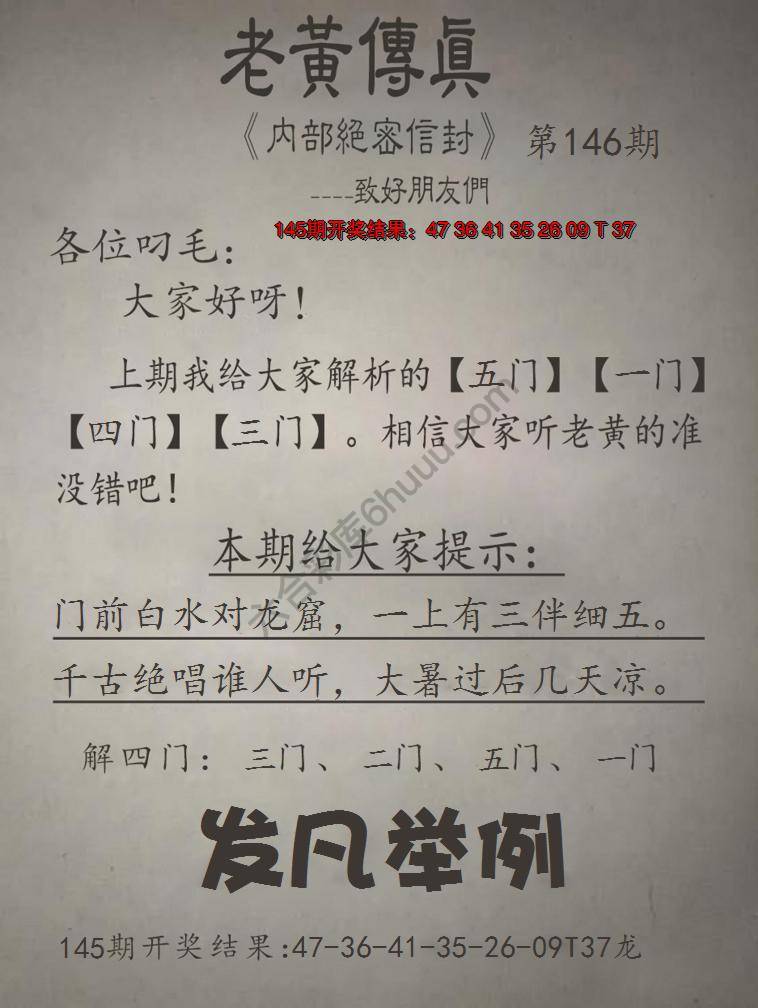 老黃傳眞
《内部絕密信封》 第146期
----致好朋友們
145期开奖结果：47 36 41 35 26 09 T 37
各位叼毛：
大家好呀！
上期我给大家解析的【五门】【一门】
【四门】【三门】。相信大家听老黄的准
没错吧！
本期给大家提示：
门前白水对龙窟，一上有三伴细五。
千古绝唱谁人听，大暑过后几天凉。
解四门：三门、二门、五门、一门
发凡举例
145期开奖结果:47-36-41-35-26-09T37龙
六合彩库6huuu.com